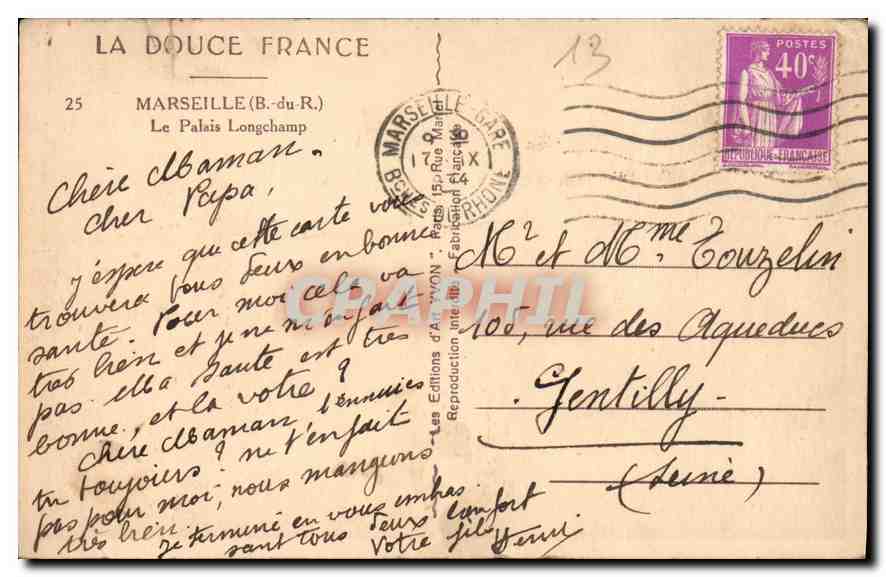 LA DOUCE FRANCE
25 MARSEILLE (B.-du-R.)
Le Palais Longchamp
Chère Maman.
cher Papa,
J'espère que cette carte vous
trouvera tous deux en bonne
santé. Pour moi cela va
très bien et je ne m'en fait
pas Ma santé est très
bonne, et la votre?
Chère Maman t'ennuies
tu toujours? ne t'en fait
pas pour moi, nous mangeons
très bien.
Je terminé en vous embras
sant tous deux bien fort
Votre fils Henri
Les Editions d'Art "YVON", Paris, 15, Rue Martel
Reproduction Interdite Fabrication Française
13
MARSEILLE-GARE
17 IX
34
BCHES DU RHONE
POSTES
40c
REPUBLIQUE-FRANCAISE
Mr et Mme Touzelin
105, rue des Aqueducs
Gentilly
(Seine)
CPAPHIL